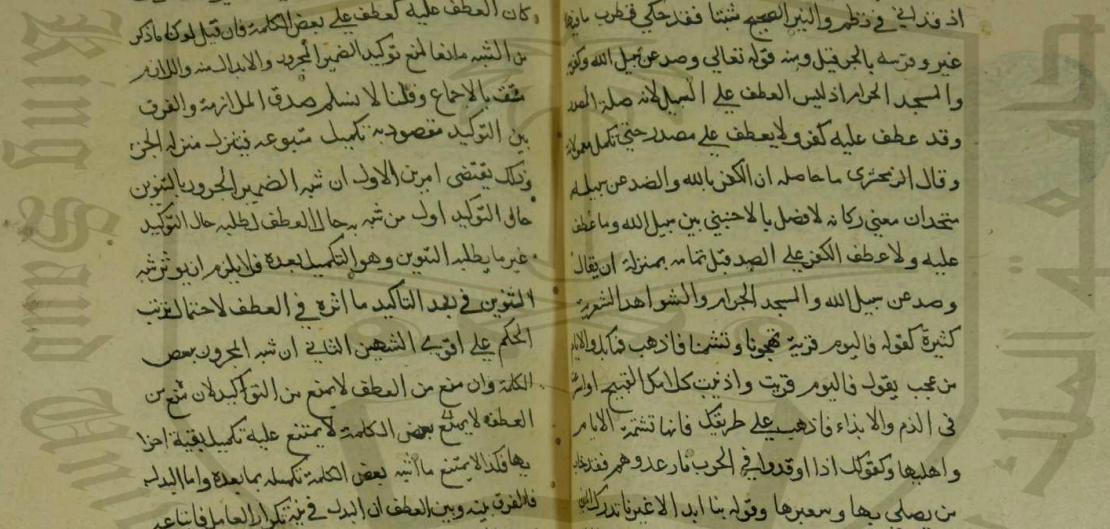 اذ قد اتى في نظم والنثر الصحيح مثبتا فقد حكى قطرب ما فيها
غيره وفرسه بالجر قيل ومنه قوله تعالى وصد عن سبيل الله وكفر به
والمسجد الحرام اذ ليس العطف على السبيل لانه صلة المصدر
وقد عطف عليه كفر ولا يعطف على مصدر حتى تكمل معمولاته
وقال الزمخشري ما حاصله ان الكفر بالله والصد عن سبيله
متحدان معنى فكانه لا فصل بالاجنبي بين سبيل الله وما عطف
عليه ولا عطف الكفر على الصد قبل تمامه بمنزلة ان يقال
وصد عن سبيل الله والمسجد الحرام والشواهد الشعرية
كثيرة كقوله فاليوم قربت تهجونا وتشتمنا فاذهب فما بك والايام
من عجب يقول فاليوم قربت واذ
في الذم والايذاء فاذهب على طريقك فانها شتمة الايام
واهلها وكقولك اذا اوقدوا في الحرب نار عدوهم فقد خاب
من يصلى بها وسعيرها وقوله بنا ابدا لا غيرنا تدرك المنى
وكان العطف عليه كعطف على بعض الكلمة فان قيل لو كان ما ذكر
من الشبه مانعا لمنع توكيد الضمير المجرور والابدال منه واللازم
منتف بالاجماع وقلنا لا نسلم صدق الملازمة والفرق
بين التوكيد مقصود به تكميل متبوعه فينزل منزلة الجزء
وذلك يقتضي امرين الاول ان شبه الضمير المجرور بالتنوين
حال التوكيد اولى من شبهه به حال العطف لطلبه حال التوكيد
غير ما يطلبه التنوين وهو التكميل بعده فلا يلزم ان يوثر شبه
التنوين في بعد التاكيد ما اثره في العطف لاحتمال ترتب
الحكم على اقوى الشبهين الثاني ان شبه المجرور ببعض
الكلمة وان منع من العطف لا يمنع من التوكيد لان منع من
العطف لا يمنع بعض الكلمة لا يمتنع عليه تكميل بقية اجزا
يها فكذا لا يمتنع ما اشبه بعض الكلمة تكميله بما بعده واما البدل
فالفرق بينه وبين العطف ان البدل في نية تكرار العامل فاتباعه
جامعة الملك
King Saud Un